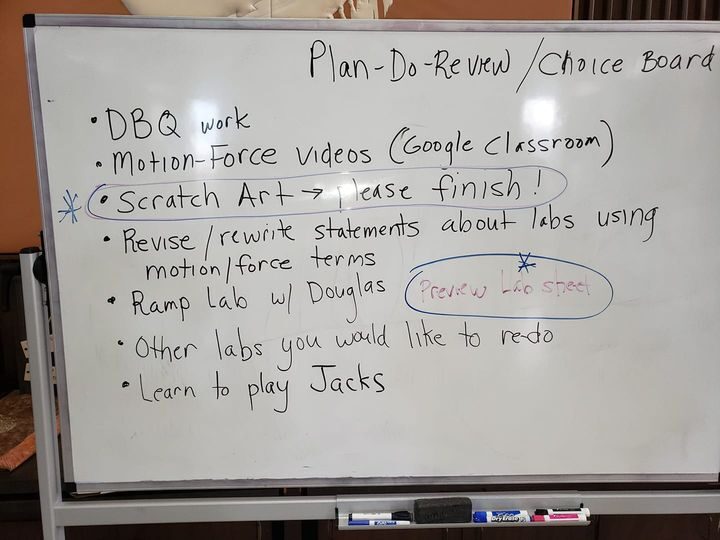 Plan-Do-Review/Choice Board
• DBQ work
• Motion-Force videos (Google Classroom)
* • Scratch Art → please finish!
• Revise/rewrite statements about labs using
motion/force terms
*
• Ramp Lab w/ Douglas Preview Lab sheet
• Other labs you would like to re-do
• Learn to play Jacks